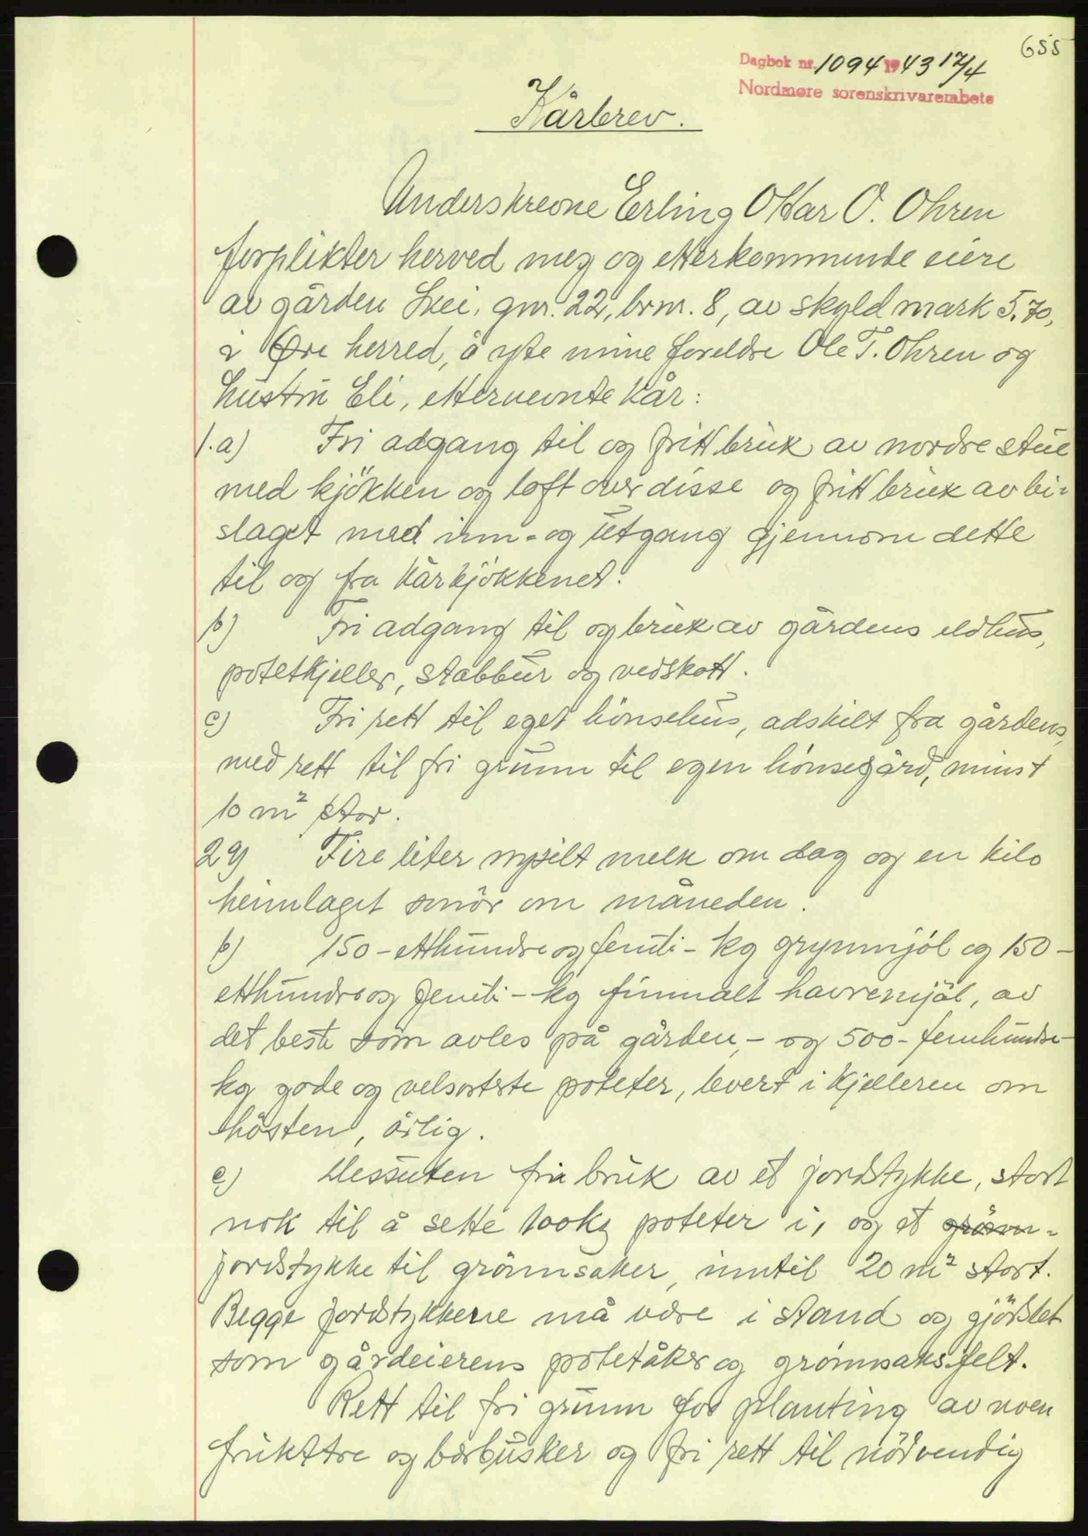 655
Dagbok nr. 1094 1943 17/4
Nordmøre sorenskrivarembete
Kårbrev.
Underskrevne Erling Ottar O. Ohren
forplikter herved meg og etterkommende eiere
av gården Lei, gnr. 22, brnr. 8, av skyld mark 5.70,
i Øre herred, å yte mine foreldre Ole T. Ohren og
hustru Eli, etternevnte kår:
1.a) Fri adgang til og fritt bruk av nordre stue
med kjökken og loft over disse og fritt bruk av bi-
slaget med inn- og utgang gjennom dette
til og fra kårkjökkenet.
b) Fri adgang til og bruk av gårdens eldhus,
potetkjeller, stabbur og vedskott.
c) Fri rett til eget hönsehus, adskilt fra gårdens,
med rett til fri grunn til egen hönsegård, minst
10 m² stor.
2 a) Fire liter nysilt melk om dag og en kilo
heimlaget smör om måneden.
b) 150 - etthundreogfemti - kg grynmjöl og 150 -
etthundreogfemti - kg finmalt havremjöl, av
det beste som avles på gården, - og 500 - femhundre -
kg gode og velsorterte poteter, levert i kjelleren om
hösten, årlig.
c) Dessuten fri bruk av et jordstykke, stort
nok til å sette 100 kg poteter i, og et grönn-
jordstykke til grönnsaker, inntil 20 m² stort.
Begge jordstykkene må være i stand og gjödslet
som gårdeierens potetåker og grönnsaksfelt.
Rett til fri grunn for planting av noen
frukttre og bærbusker og fri rett til nödvendig